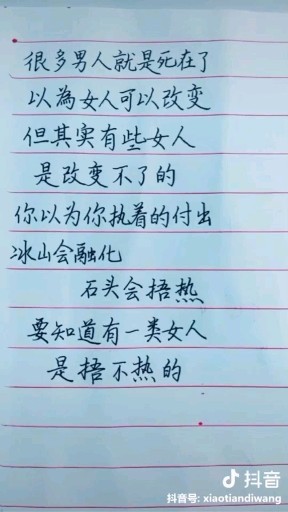 很多男人就是死在了
以為女人可以改变
但其实有些女人
是改变不了的
你以为你执着的付出
冰山会融化
石头会捂热
要知道有一类女人
是捂不热的
抖音
抖音号: xiaotiandiwang